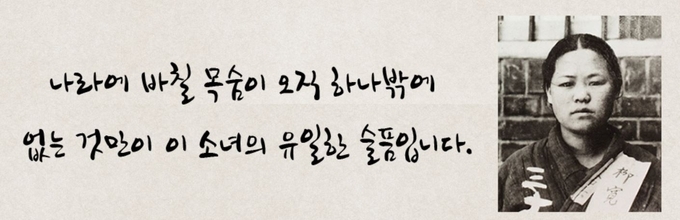 나라에 바칠 목숨이 오직 하나밖에
없는 것만이 이 소녀의 유일한 슬픔입니다.
柳寛